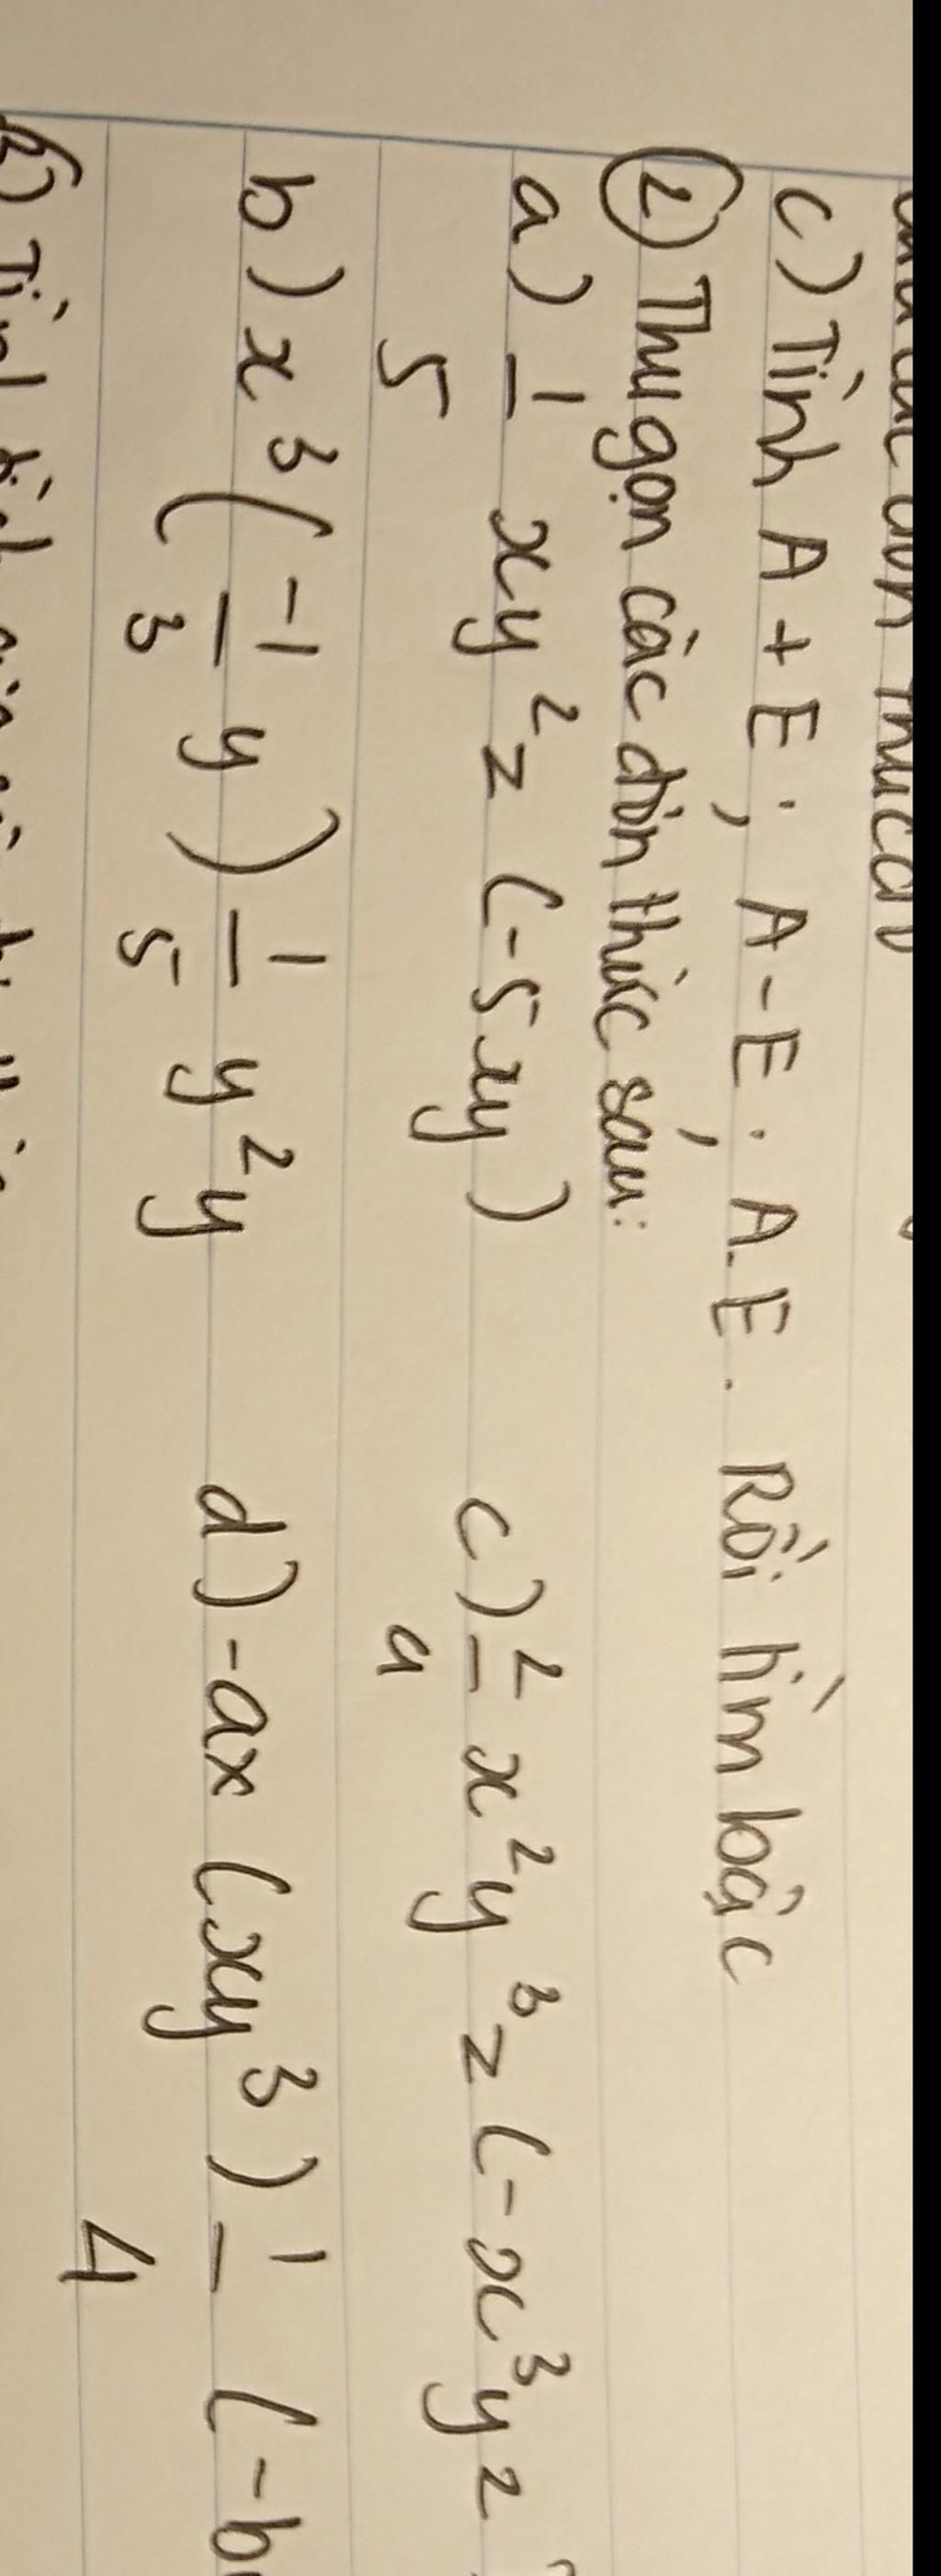 c) Tình A + E; A - E; A.E. Rồi tìm bậc
② Thu gọn các đơn thức sau:
a) 1/5 xy²z (-5xy) c) 2/9 x²y³z (-x³yz
b) x³(-1/3 y) 1/5 y²y d) -ax (xy³) 1/4 (-b